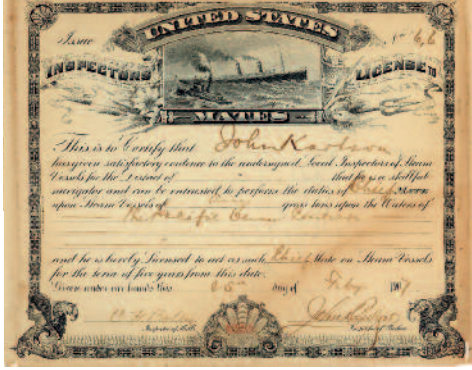 UNITED STATES
Issue No 6,6
INSPECTORS LICENSE TO
MATES
This is to Certify that John Karlson
has given satisfactory evidence to the undersigned Local Inspectors of Steam
Vessels for the District of that he is a skillful
navigator and can be entrusted to perform the duties of Chief Mate
upon Steam Vessels of Any gross tons upon the Waters of
the Pacific Ocean
and he is hereby Licensed to act as such Chief Mate on Steam Vessels
for the term of five years from this date.
Given under our hands this day of Feby 1907
Inspector of Hulls. Inspector of Boilers.